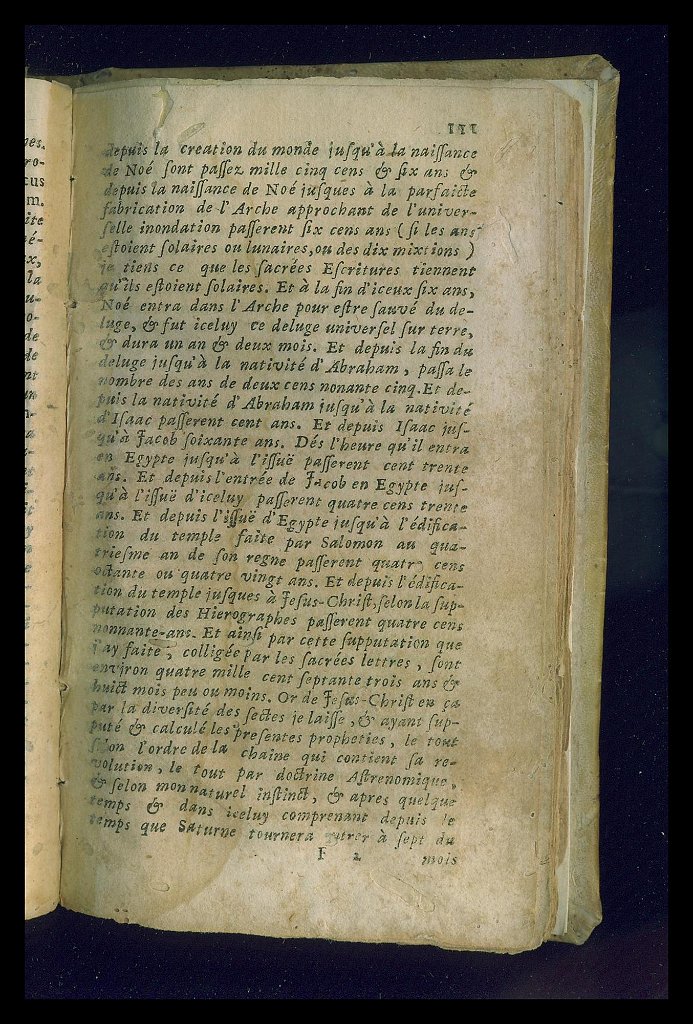 III
depuis la creation du monde juſqu'à la naiſſance
de Noé ſont paſſez mille cinq cens & ſix ans &
depuis la naiſſance de Noé juſques à la parfaicte
fabrication de l'Arche approchant de l'univer-
ſelle inondation paſſerent ſix cens ans (ſi les ans
eſtoient ſolaires ou lunaires, ou des dix mixtions)
je tiens ce que les ſacrées Eſcritures tiennent
qu'ils eſtoient ſolaires. Et à la fin d'iceux ſix ans,
Noé entra dans l'Arche pour eſtre ſauvé du de-
luge, & fut iceluy ce deluge univerſel ſur terre,
& dura un an & deux mois. Et depuis la fin du
deluge juſqu'à la nativité d'Abraham, paſſa le
nombre des ans de deux cens nonante cinq. Et de-
puis la nativité d'Abraham juſqu'à la nativité
d'Iſaac paſſerent cent ans. Et depuis Iſaac juſ-
qu'à Jacob ſoixante ans. Dés l'heure qu'il entra
en Egypte juſqu'à l'iſſuë paſſerent cent trente
ans. Et depuis l'entrée de Jacob en Egypte juſ-
qu'à l'iſſuë d'iceluy paſſerent quatre cens trente
ans. Et depuis l'iſſuë d'Egypte juſqu'à l'édifica-
tion du temple faite par Salomon au qua-
trieſme an de ſon regne paſſerent quatre cens
octante ou quatre vingt ans. Et depuis l'édifica-
tion du temple juſques à Jeſus-Chriſt, ſelon la ſup-
putation des Hierographes paſſerent quatre cens
nonnante-ans. Et ainſi par cette ſupputation que
j'ay faite, colligée par les ſacrées lettres, ſont
environ quatre mille cent ſeptante trois ans &
huict mois peu ou moins. Or de Jeſus-Chriſt en ça
par la diverſité des ſectes je laiſſe, & ayant ſup-
puté & calculé les preſentes propheties, le tout
ſelon l'ordre de la chaine qui contient ſa re-
volution, le tout par doctrine Aſtronomique,
& ſelon mon naturel inſtinct, & apres quelque
temps & dans iceluy comprenant depuis le
temps que Saturne tournera entrer à ſept du
F 2 mois